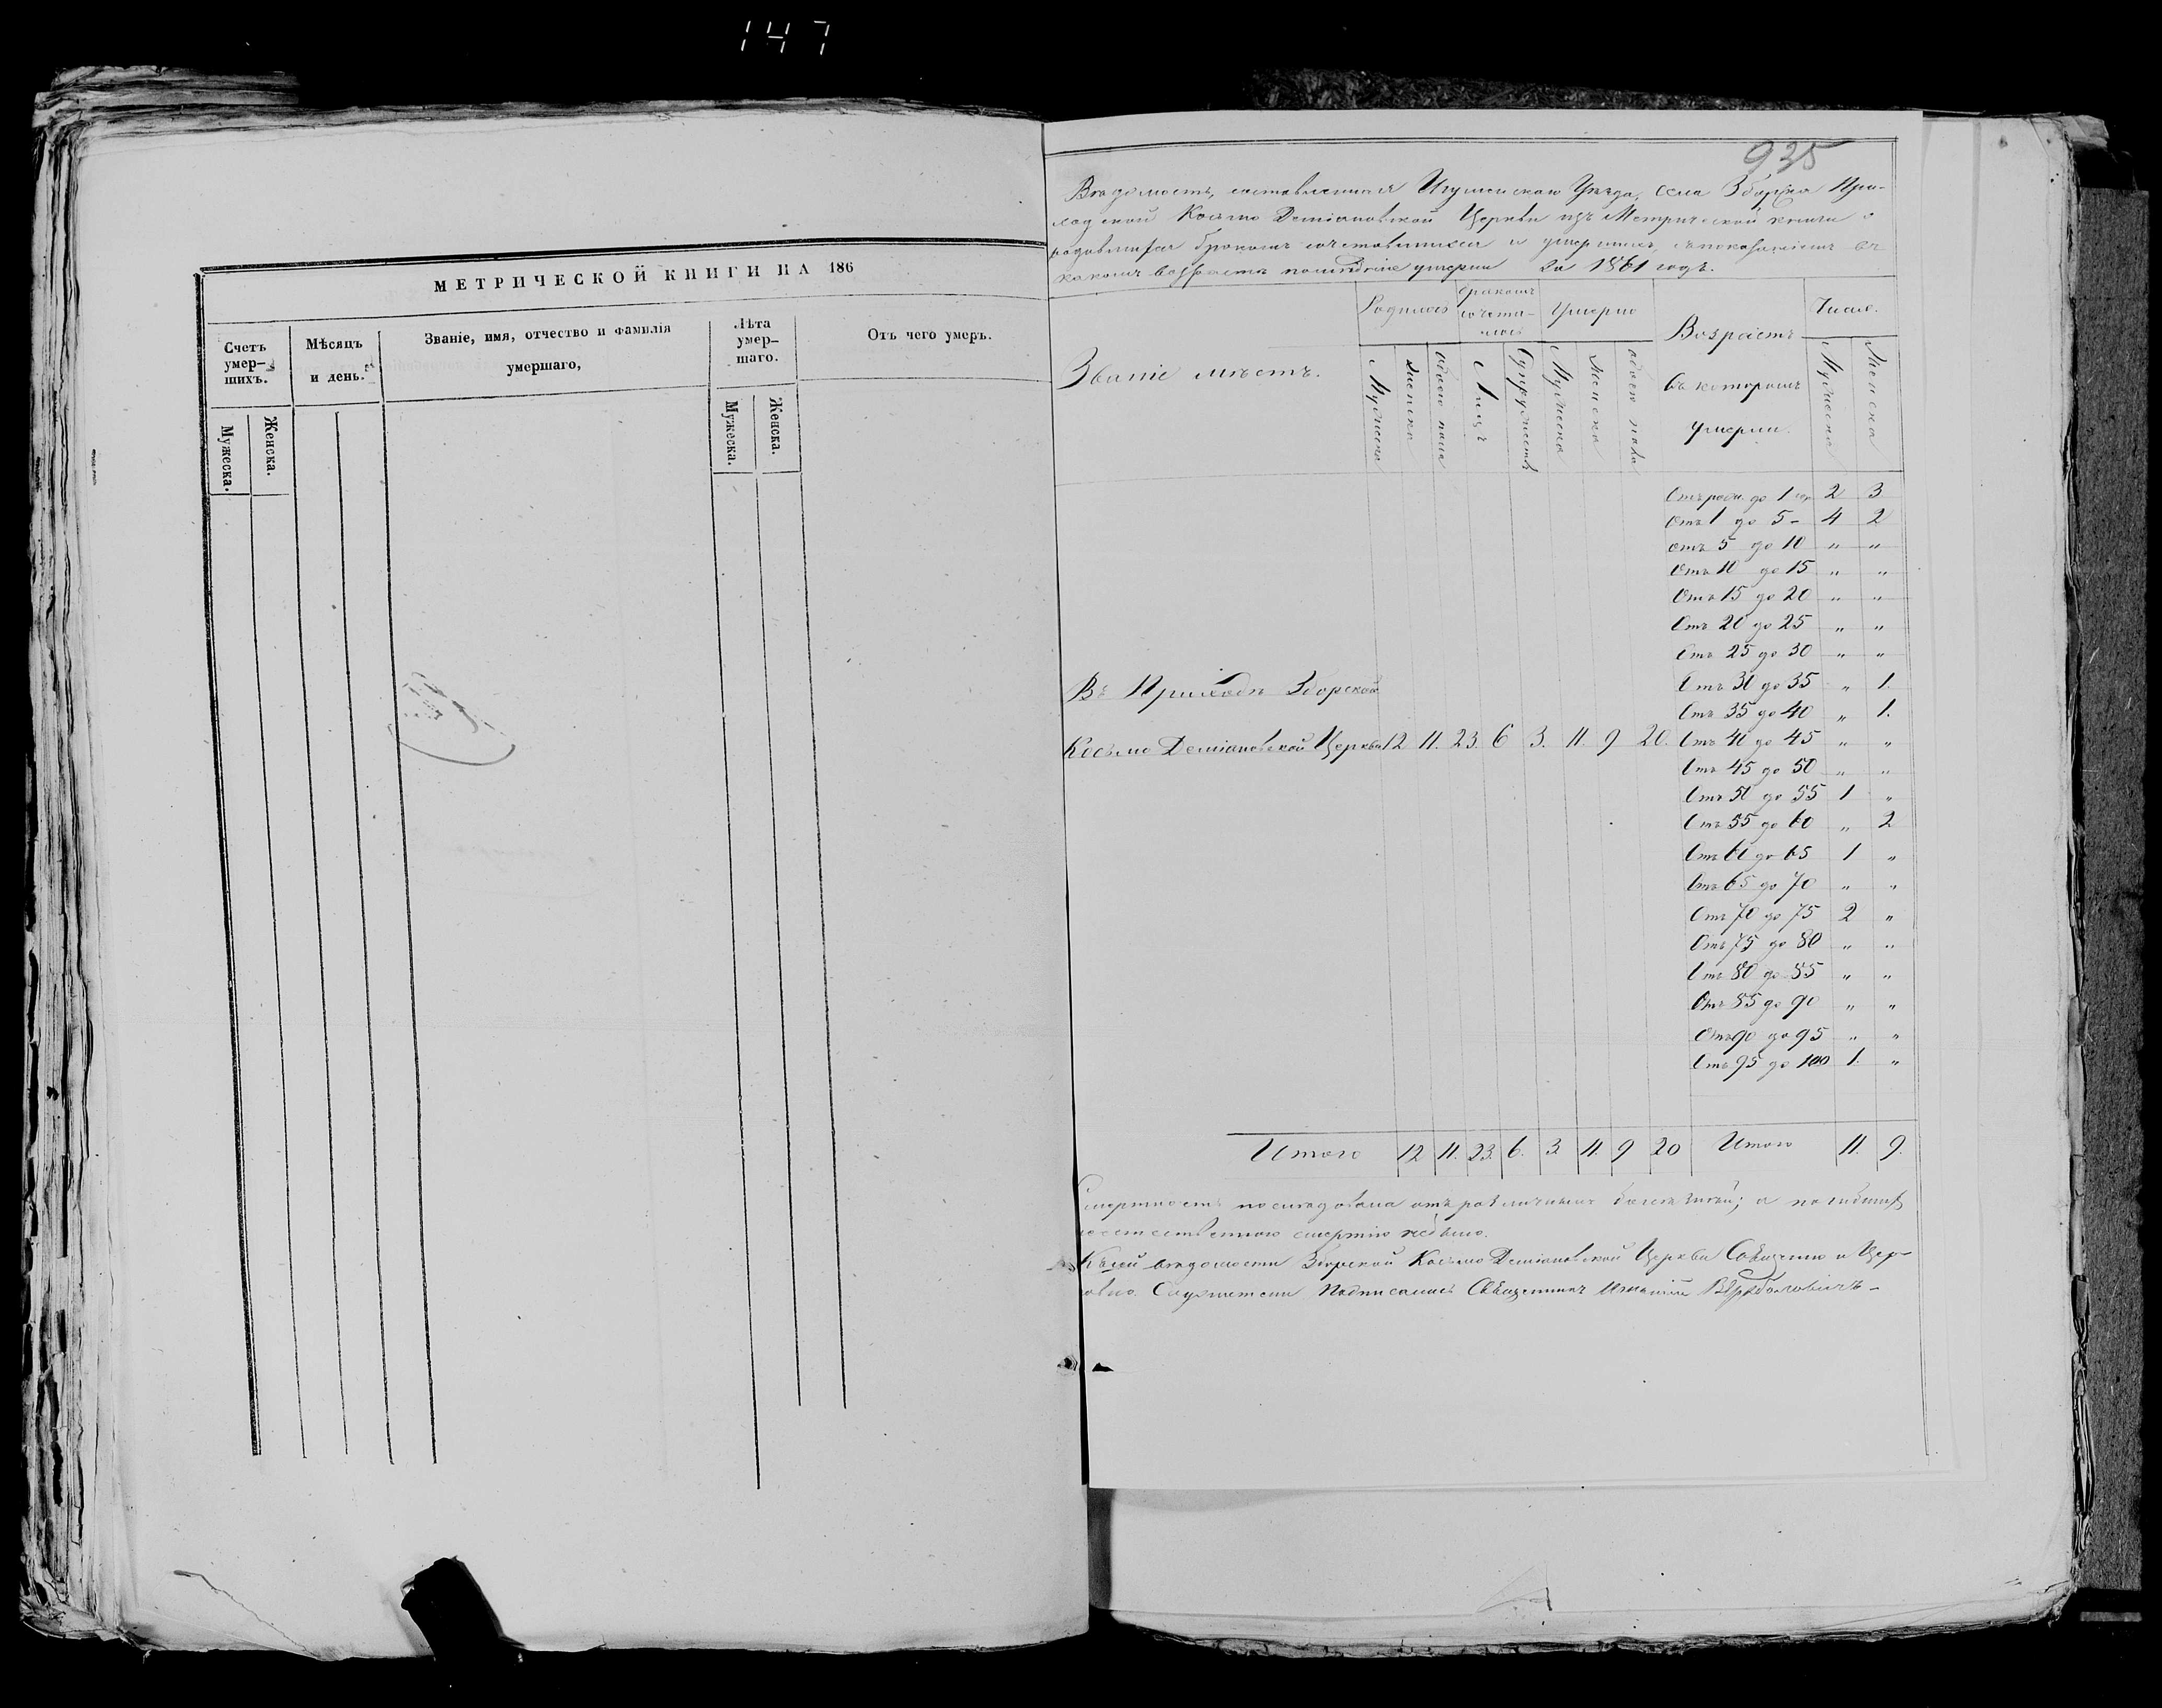 147
МЕТРИЧЕСКОЙ КНИГИ НА 186
Счетъ умер-шихъ.
Мужеска.
Женска.
Мѣсяцъ и день.
Званіе, имя, отчество и фамилія умершаго,
Лѣта умер-шаго.
Мужеска.
Женска.
Отъ чего умеръ.
935
Вѣдомость, составленная Игуменскаго Уѣзда, села Зборска При-
ходской Косьмо Деміановской Церкви изъ Метрической книги о
родившихся бракомъ сочетавшихся и умершихъ, съ показаніемъ въ
какомъ возрастѣ умерли за 1861 годъ.
Званіе мѣстъ.
Родилось
Мужеска
Женска
обоего пола
бракомъ сочета-лось
Лицъ
Супружествъ
Умерло
Мужеска
Женска
обоего пола
Возрастъ въ которомъ умерли.
Число.
Мужеска
Женска
Отъ рожд. до 1 2 3
Отъ 1 до 5 - 4 2
Отъ 5 до 10 " "
Отъ 10 до 15 " "
Отъ 15 до 20 " "
Отъ 20 до 25 " "
Отъ 25 до 30 " "
Въ Приходѣ Зборской
Отъ 30 до 35 " 1.
Отъ 35 до 40 " 1.
Косьмо Деміановской Церкви 12 11. 23. 6 3. 11. 9 20. Отъ 40 до 45 " "
Отъ 45 до 50 " "
Отъ 50 до 55 1 "
Отъ 55 до 60 " 2
Отъ 60 до 65 1 "
Отъ 65 до 70 " "
Отъ 70 до 75 2 "
Отъ 75 до 80 " "
Отъ 80 до 85 " "
Отъ 85 до 90 " "
Отъ 90 до 95 " "
Отъ 95 до 100 1. "
Итого 12 11. 23. 6. 3 11. 9 20 Итого 11. 9.
Смертность послѣдовала отъ различныхъ болѣзней; а погибшихъ
смертію небыло.
Къ сей вѣдомости Зборской Косьмо Деміановской Церкви Священно и Цер-
ковно Служители Подписались Священникъ